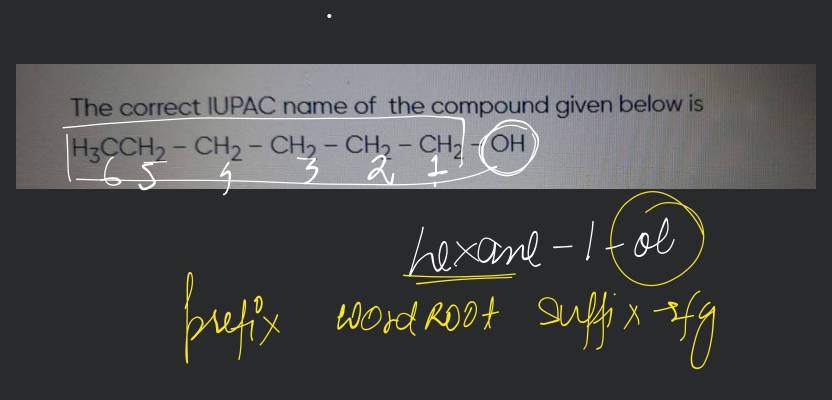 The correct IUPAC name of the compound given below is
H₃CCH₂ – CH₂ – CH₂ – CH₂ – CH₂ – OH
6 5 4 3 2 1
hexane – 1 – ol
prefix word ROOt suffix → fg